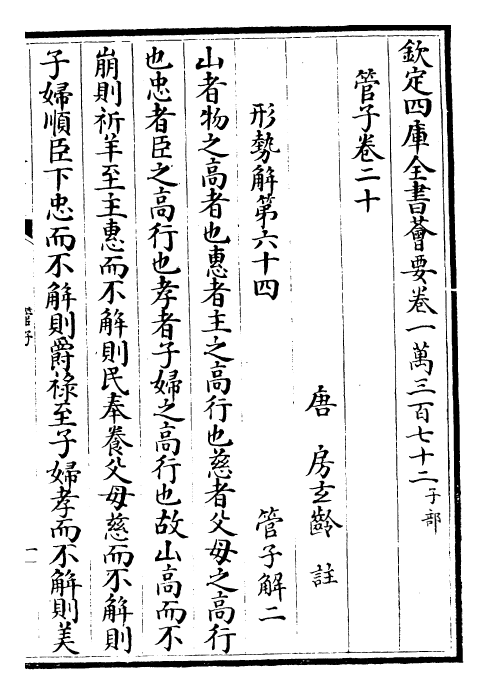 欽定四庫全書薈要卷一萬三百七十二子部
管子卷二十
唐 房玄齡 註
形勢解第六十四 管子解二
山者物之高者也惠者主之高行也慈者父母之高行
也忠者臣之高行也孝者子婦之高行也故山高而不
崩則祈羊至主惠而不解則民奉養父母慈而不解則
子婦順臣下忠而不解則爵祿至子婦孝而不解則美
管子
一